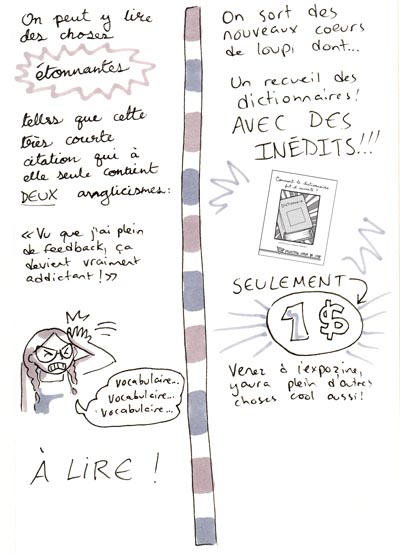 On peut y lire
des choses
étonnantes
telles que cette
très courte
citation qui à
elle seule contient
DEUX anglicismes:
« Vu que j'ai plein
de feedback, ça
devient vraiment
addictant ! »
vocabulaire...
vocabulaire...
vocabulaire...
À LIRE !
On sort des
nouveaux coeurs
de loup, dont...
Un recueil des
dictionnaires!
AVEC DES
INÉDITS!!!
Comment le dictionnaire
fut-il inventé ?
Dictionnaire
SEULEMENT
1$
Venez à l'expozine,
y aura plein d'autres
choses cool aussi!